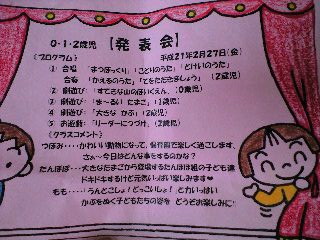 0・1・2歳児 【発表会】
《プログラム》 平成21年2月27日(金)
① 合唱 「まつぼっくり」「ことりのうた」「とけいのうた」
合奏 「かえるのうた」「てをたたきましょう」 (2歳児)
② 劇遊び 「すてきな山のほいくえん」 (0歳児)
③ 劇遊び 「ま~るい たまご」 (1歳児)
④ 劇遊び 「大きな かぶ」 (2歳児)
⑤ お遊戯 「リーダーにつづけ」 (2歳児)
《クラスコメント》
つぼみ・・・・かわいい動物になって、保育園で楽しく過ごします。
さぁ~今日はどんな事をするのかな?
たんぽぽ・・・大きなたまごから登場するたんぽぽ組の子ども達
ドキドキするけど元気いっぱい楽しみます♥
もも・・・・・うんとこしょ!どっこいしょ! と力いっぱい
かぶをぬく子どもたちの姿を どうぞお楽しみに!!